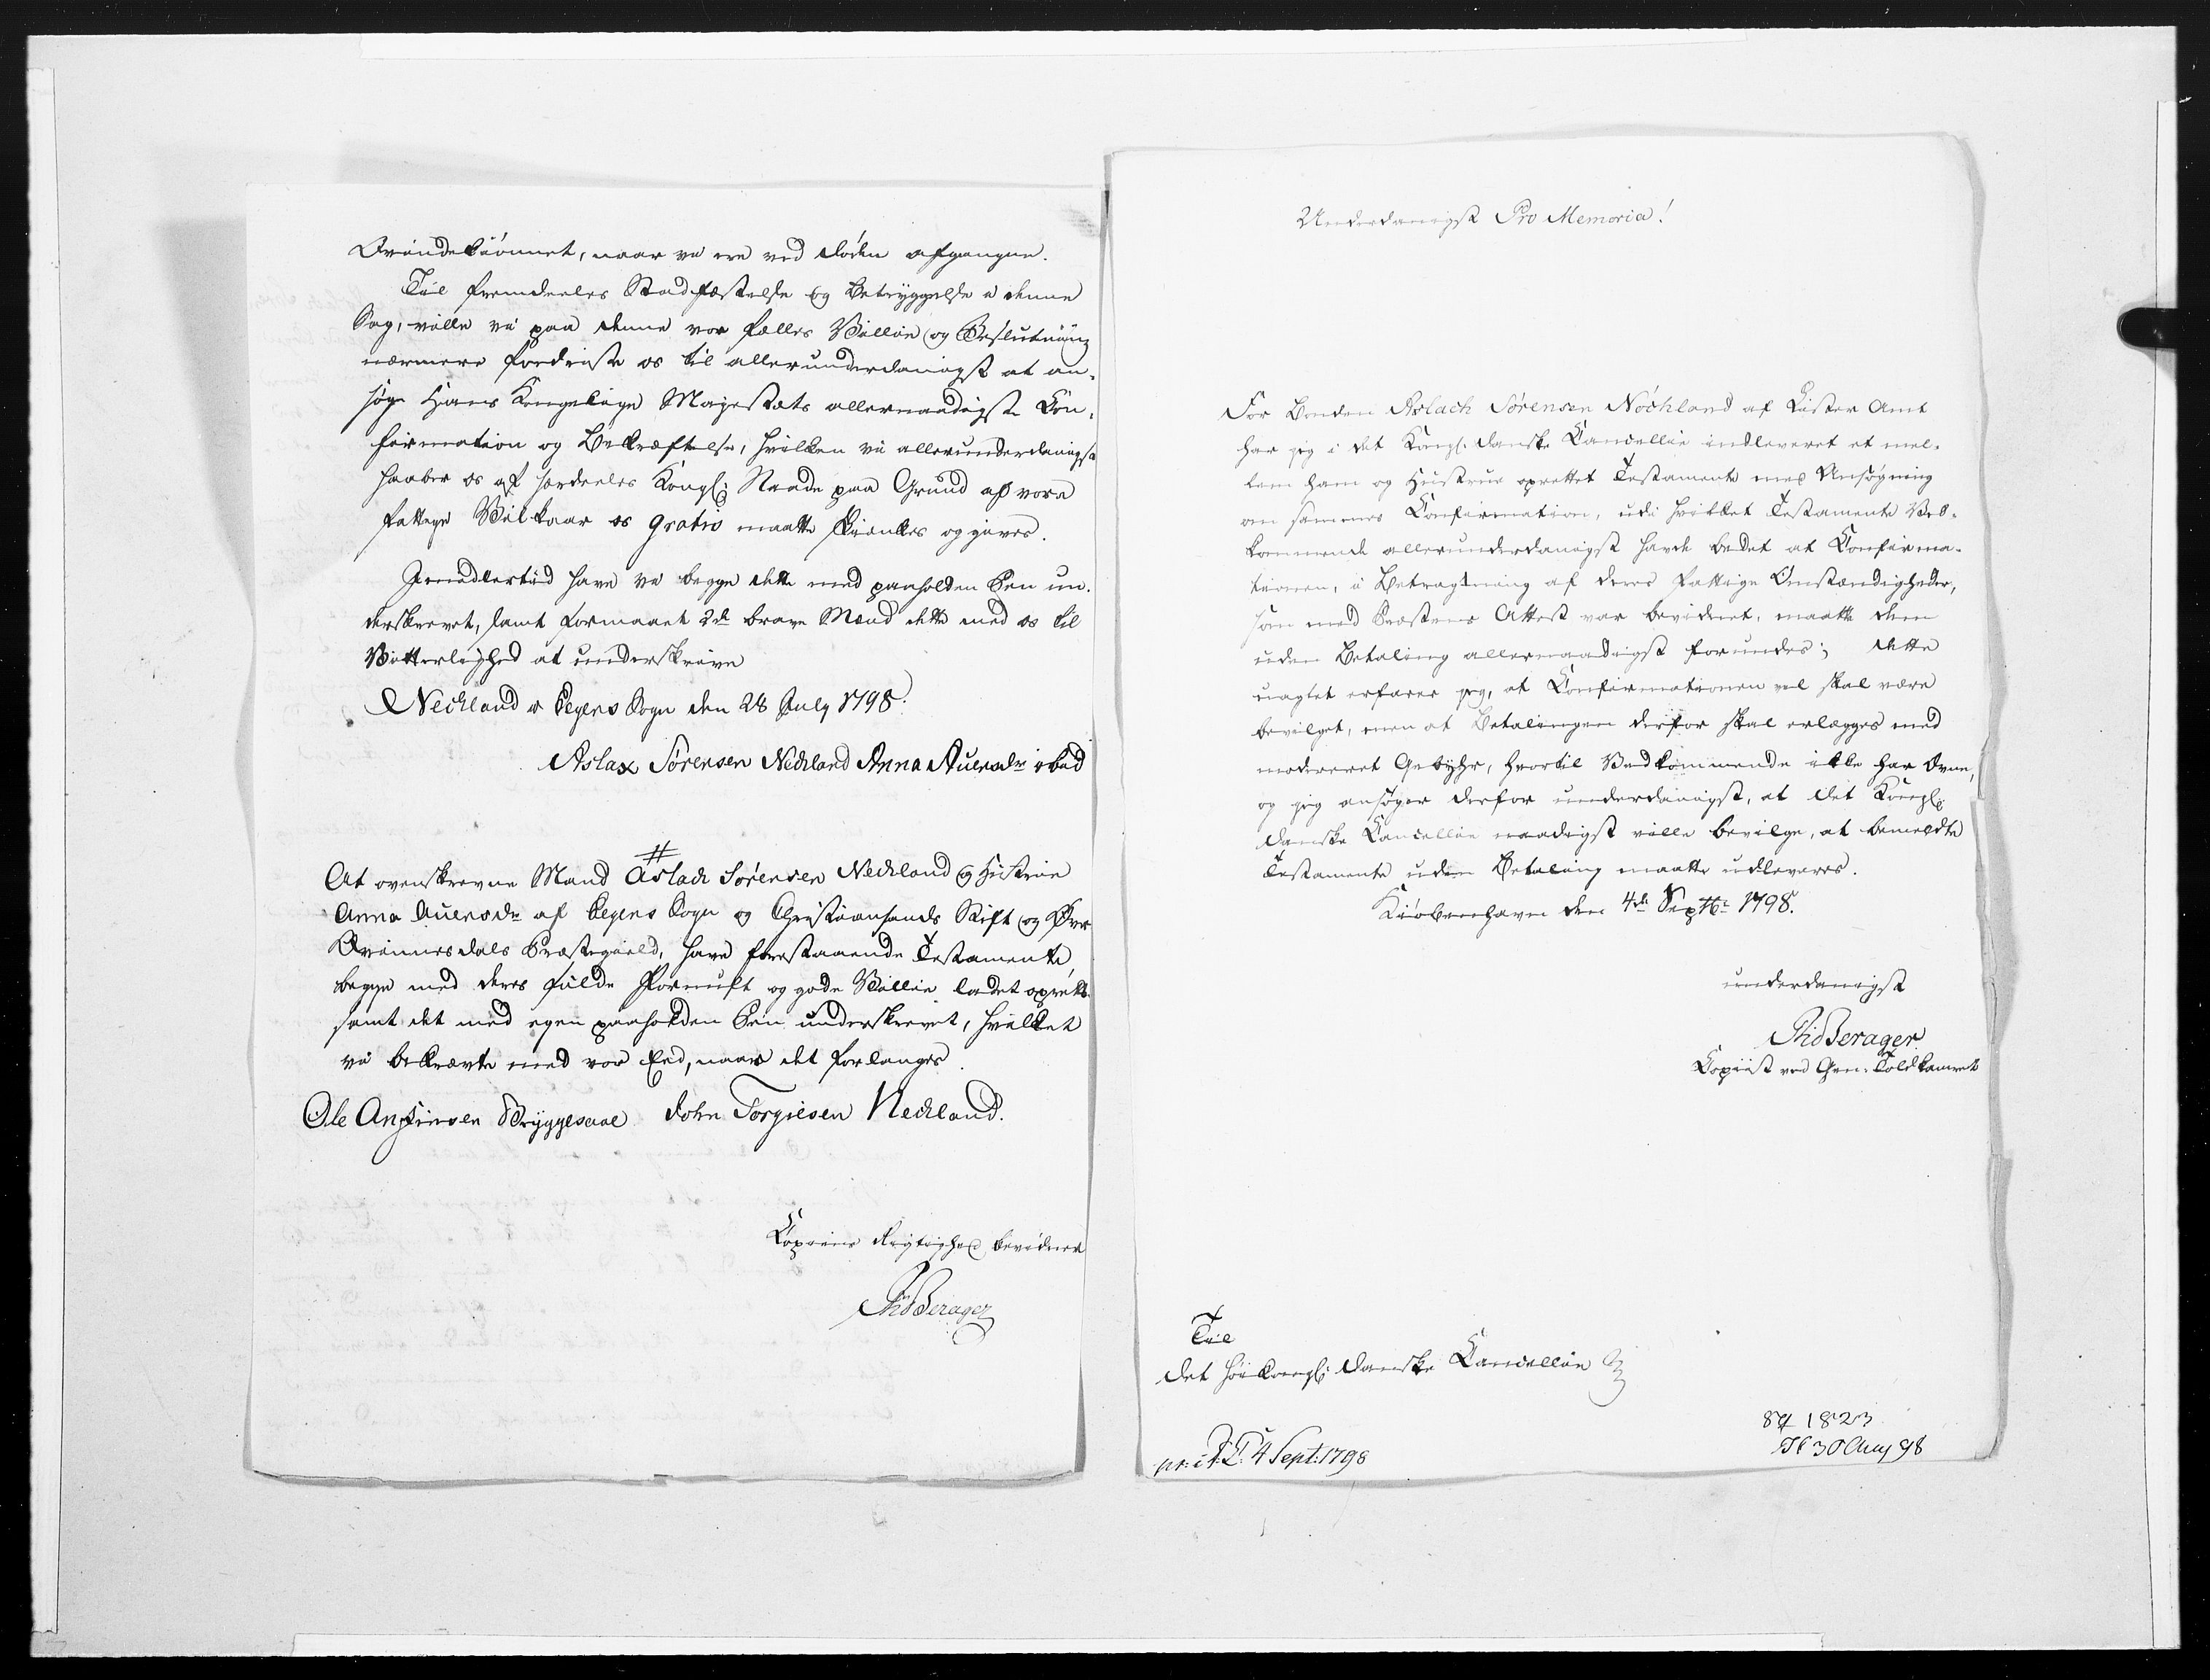 Qvindekiönnet, naar vi ere ved döden afgangne.
Til fremdeeles Stadfæstelse og Betryggelse i denne
Sag, ville vi paa denne vor fælles Villie og Beslutning
nærmere fordriste os til allerunderdanigst at an-
søge Hans Kongelige Majestæts allernaadigste Con-
firmation og Bekræftelse, hvilken vi allerunderdanigst
haaber os af særdeeles Kongl: Naade paa Grund af vore
fattige Vilkaar os gratis maatte skienkes og gives.
Imidlertiid have vi begge dette med paaholden Pen un-
derskrevet, samt formaaet 2de brave Mænd dette med os til
Vitterlighed at underskrive
Nechland i Fegens Sogn den 28 July 1798.
Aslax Sørensen Nechland Anna Auensdr ibid
At ovenskrevne Mand Aslach Sørensen Nechland og Hustrue
Anna Auensdr af Fegens Sogn og Christiansands Stift og Øvre
Qvinnesdals Præstegield, have forestaaende Testamente
begge med deres fulde Fornuft og gode Villie ladet oprette
samt det med egen paaholden Pen underskrevet, hvilket
vi bekrævte med vor Eed, naar det forlanges.
Ole Anfinsen Bryggesaae John Torgiesen Nechland.
Copiens Rigtighed bevidner
ThdBerager
Underdanigst Pro Memoria!
For Bonden Aslach Sørensen Nöchland af Lister Amt
har jeg i det Kongl. danske Cancellie indleveret et mel-
lem ham og Hustrue oprettet Testamente med Ansøgning
om sammes Confirmation, udi hvilket Testamente Ved-
kommende allerunderdanigst havde bedet at Confirma-
tionen, i Betragtning af deres fattige Omstændigheder,
som med Præstens Attest var bevidnet, maatte dem
uden Betaling allernaadigst forundes; dette
uagtet erfarer jeg, at Confirmationen vel skal være
bevilget, men at Betalingen derfor skal erlægges med
modereret Gebyhr, hvortil Vedkommende ikke har Evne,
og jeg ansøger derfor underdanigst, at det Kongl:
danske Cancellie naadigst ville bevilge, at bemeldte
Testamente uden Betaling maatte udleveres.
Kiöbenhavn den 4de Septbr 1798.
underdanigst
ThdBerager
Copiist ved Gen: Toldkamret
Til
det høikongl: danske Cancellie
pr: i D: C: 4 Sept: 1798
1823
30 Aug 98